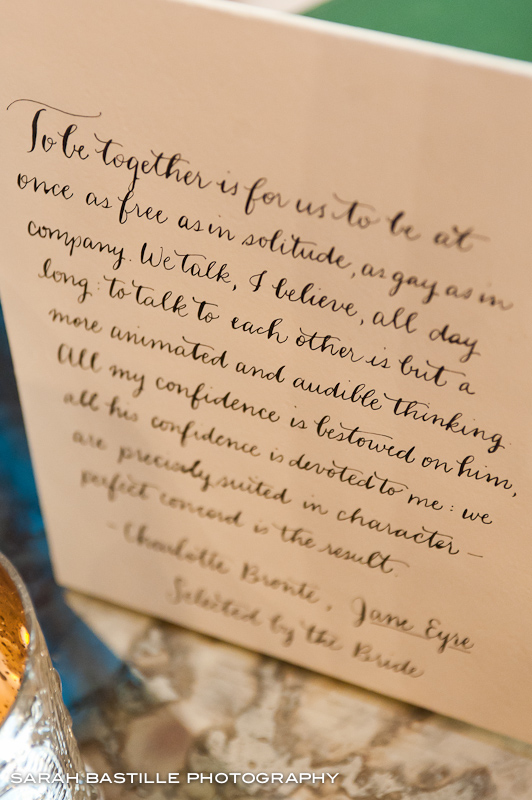 To be together is for us to be at
once as free as in solitude, as gay as in
company. We talk, I believe, all day
long: to talk to each other is but a
more animated and audible thinking.
All my confidence is bestowed on him,
all his confidence is devoted to me: we
are precisely suited in character -
perfect concord is the result.
- Charlotte Bronte, Jane Eyre
Selected by the Bride
SARAH BASTILLE PHOTOGRAPHY